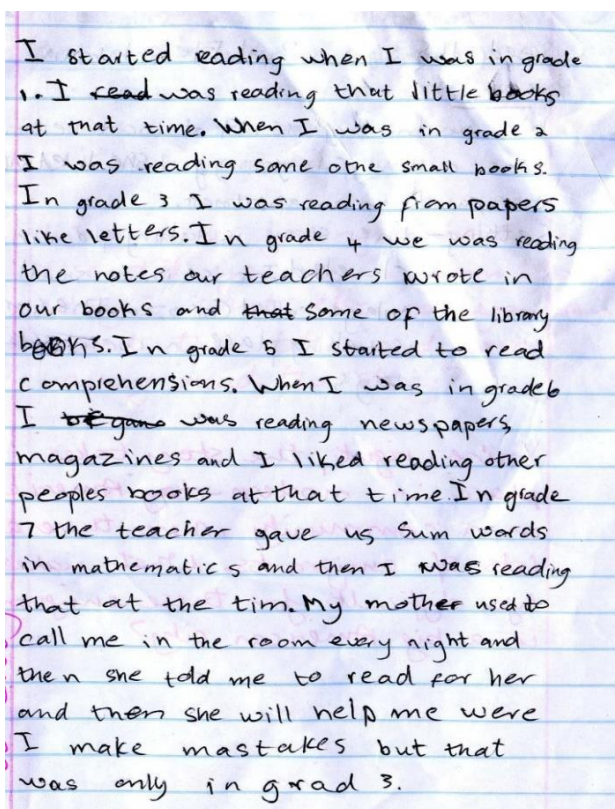 I started reading when I was in grade
1. I read was reading that little books
at that time. When I was in grade 2
I was reading some othe small books.
In grade 3 I was reading from papers
like letters. In grade 4 we was reading
the notes our teachers wrote in
our books and that some of the library
books. In grade 5 I started to read
comprehensions. When I was in grade 6
I began was reading newspapers,
magazines and I liked reading other
peoples books at that time. In grade
7 the teacher gave us sum words
in mathematics and then I was reading
that at the tim. My mother used to
call me in the room every night and
then she told me to read for her
and then she will help me were
I make mastakes but that
was only in grad 3.